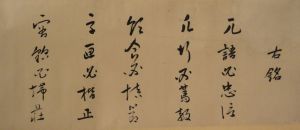 右銘
凡語必忠信
凡行必篤敬
飲食必慎節
字画必楷正
容貌必端莊